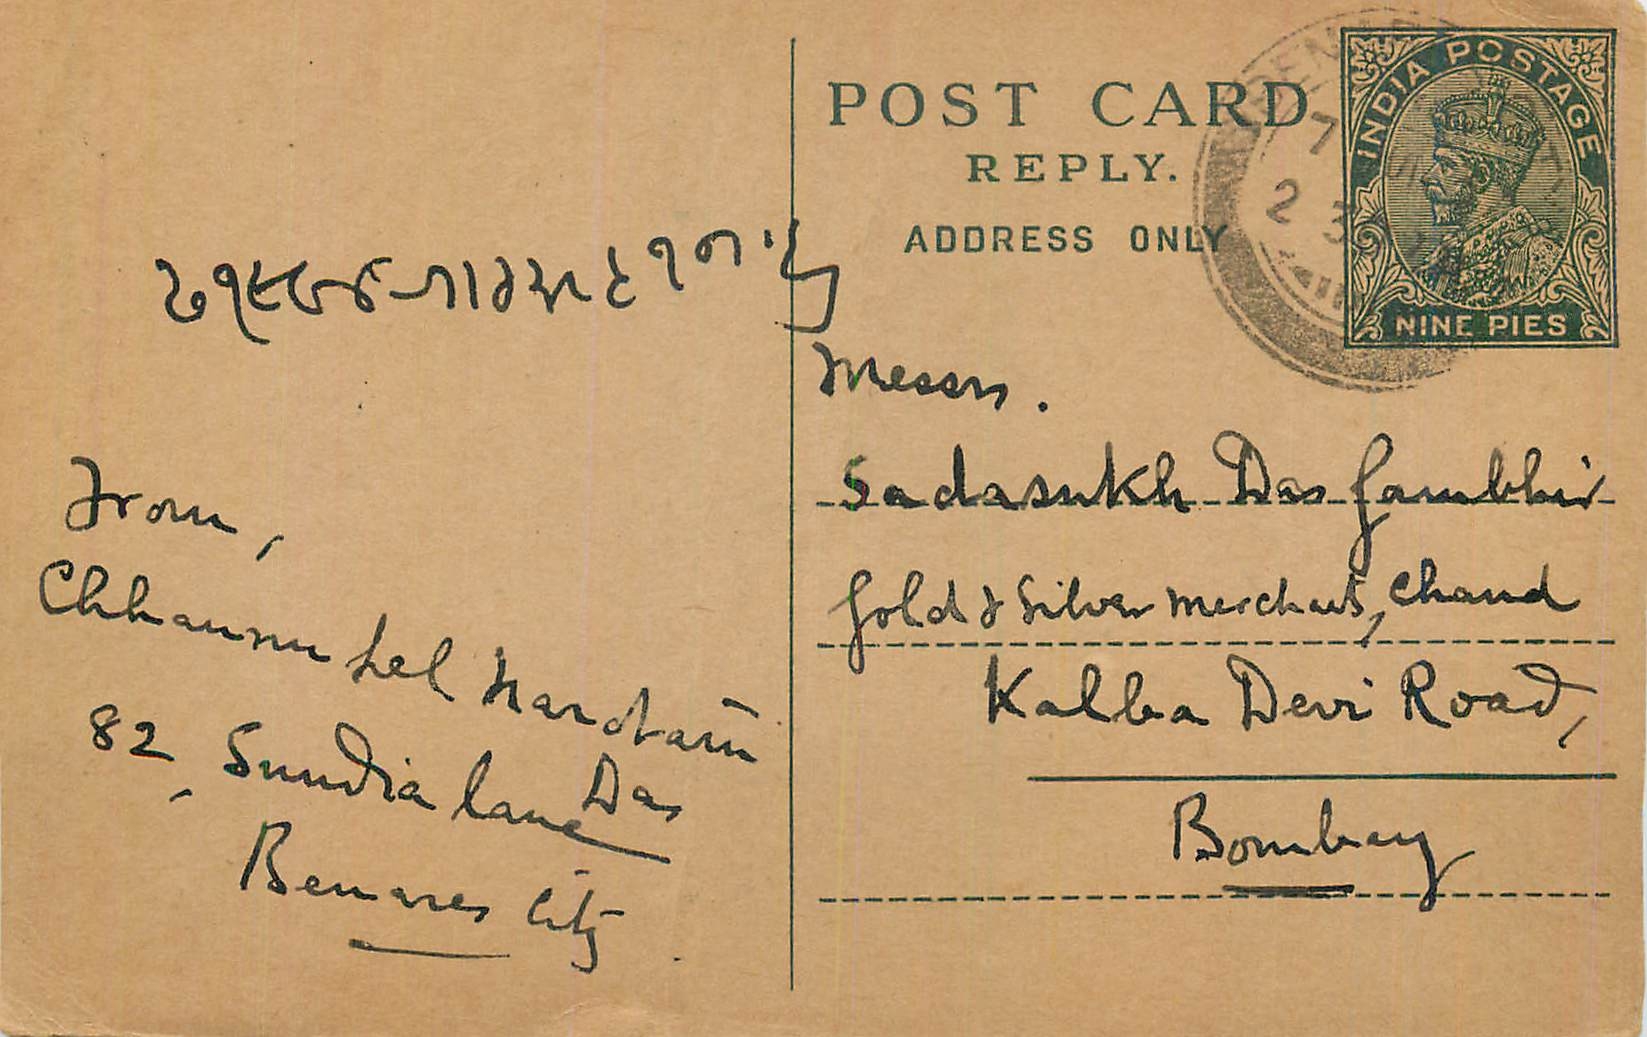 POST CARD
REPLY.
ADDRESS ONLY
INDIA POSTAGE
NINE PIES
7
2
Messrs.
Sadasukh Das Gambhir
Gold & Silver Merchants, Chand
Kalba Devi Road,
Bombay
From,
Chhannu Lal Narotam
Das
82, Sundia lane
Benares City